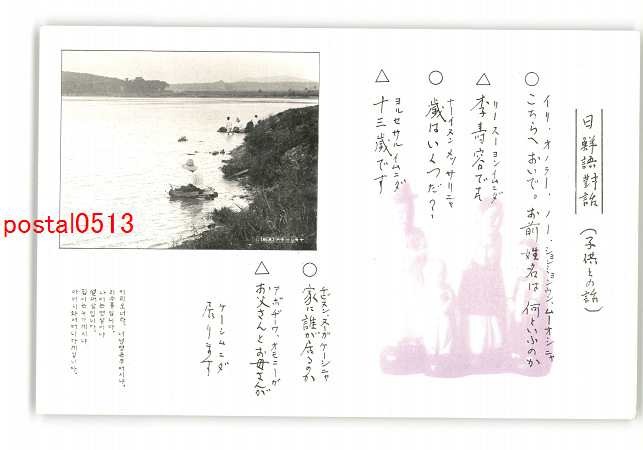 日鮮語對話 (子供との話)
イリ・オノラー・ノー・ションミョンウンムーオシニャ
○ こちらへおいで。お前 姓名は 何といふのか
リースーヨンイムニダ
△ 李壽容です
ナーイヌン メッサリニャ
○ 歳はいくつだ?
ヨルセサルイムニダ
△ 十三歳です
○ 家に誰が居るのか
アボヂーワ、オモニーガ
△ お父さんとお母さんが
ケーシムニダ
居ります
이리오너라, 너성명은무어시냐,
리수용임니다,
나이는몃살이냐
열세살임니다,
집에는누가게시냐
아버지와어머니가게십니다,
postal0513